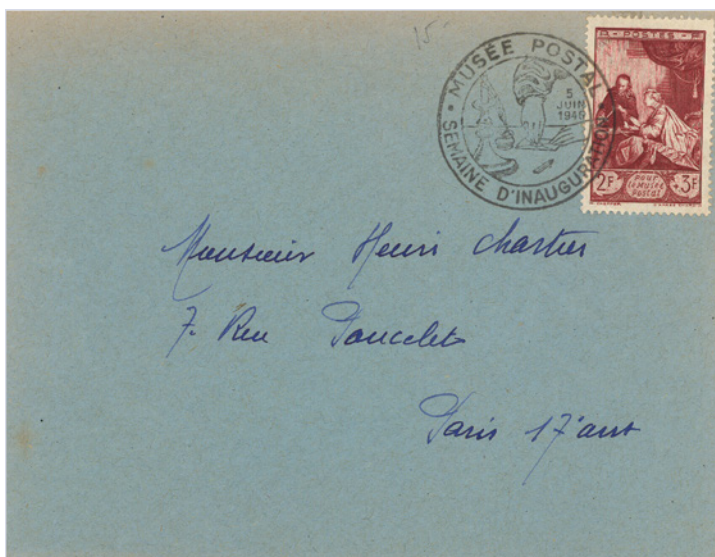 15-
MUSÉE POSTAL
5
JUIN
1946
SEMAINE D'INAUGURATION
POSTES
2F
pour
le Musée
Postal
+3F
Monsieur Henri Chartier
7. Rue Poncelet
Paris 17e arrt